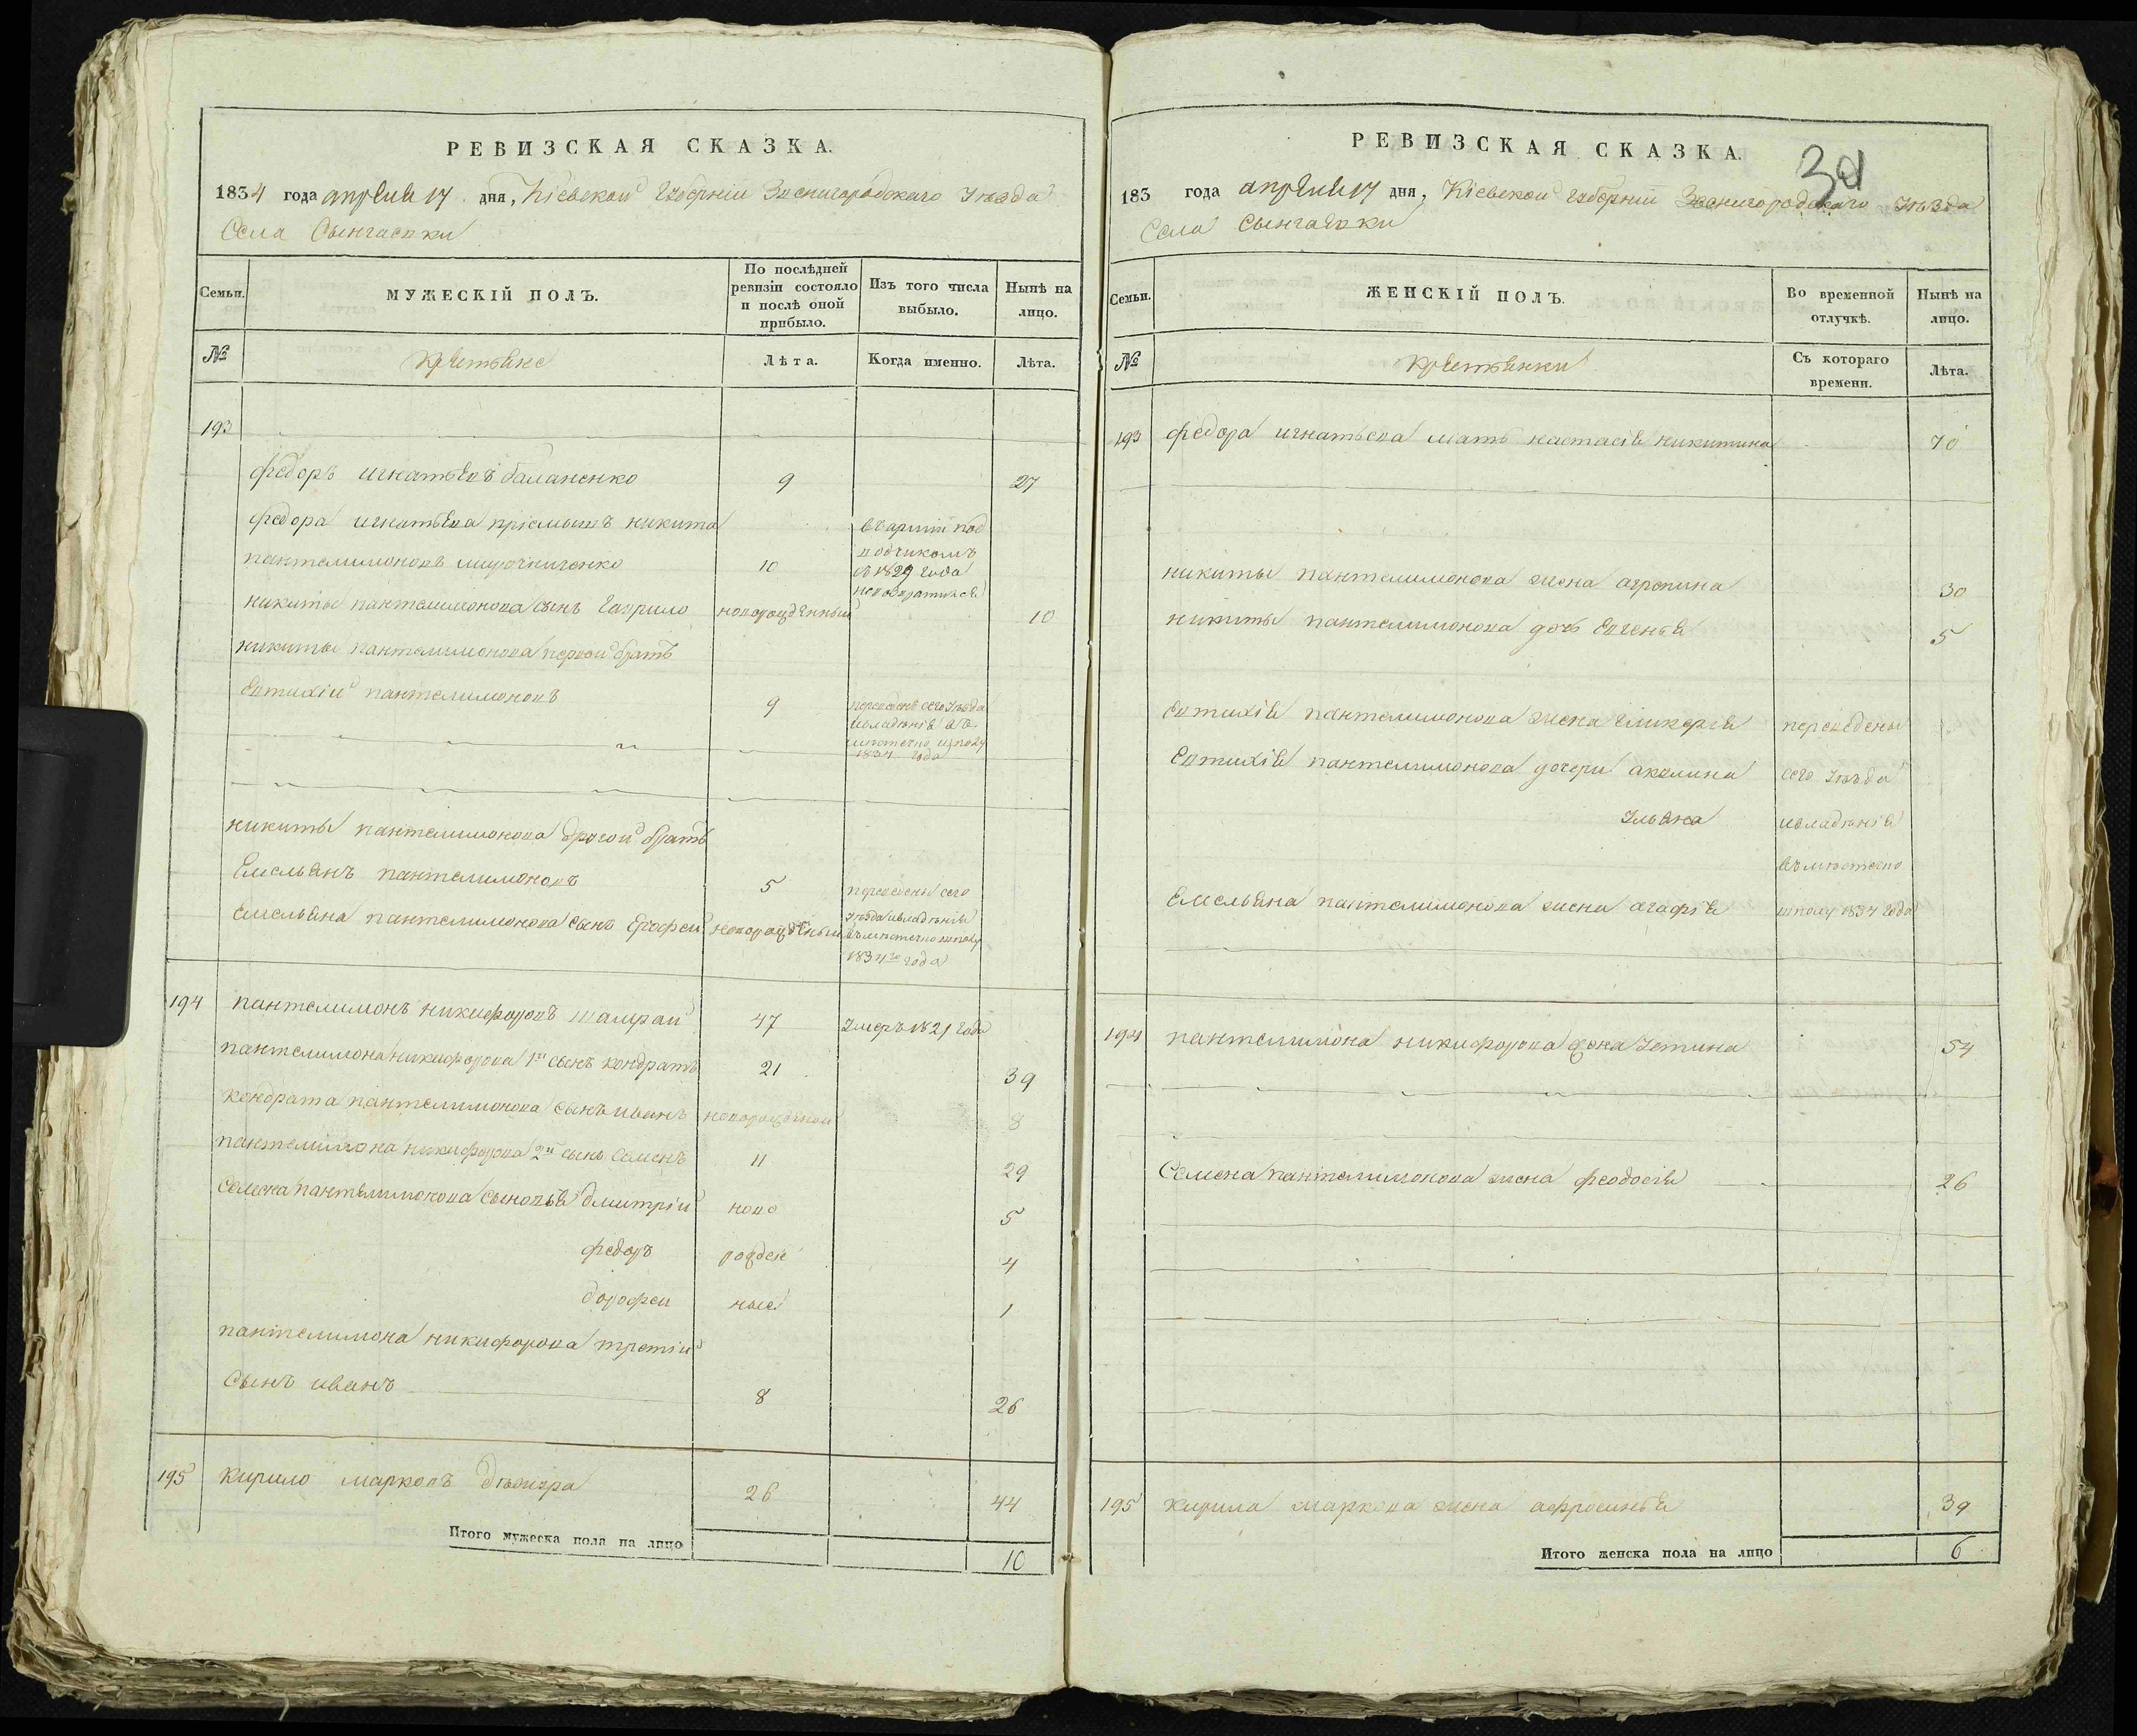 РЕВИЗСКАЯ СКАЗКА.
1834 года апреля 17 дня, Кіевской Губерніи Звенигородского Уезда
Села
Семьи.
МУЖЕСКІЙ ПОЛЪ.
По послѣдней ревизіи состояло и послѣ оной прибыло.
Изъ того числа выбыло.
Нынѣ на лицо.
№
Крестьяне
Лѣта.
Когда именно.
Лѣта.
193
федоръ игнатьевъ баланенко 9 27
федора игнатьева пріемышъ никита
пантелимоновъ мирочниченко 10
въ арміи под
водчикомъ
съ 1829 года
невозвратился
никиты пантелимонова сынъ гаврило новорожденный 10
никиты пантелимонова первой братъ
Евтихій пантелимоновъ 9
переведенъ сего Уезда
1834 года
никиты пантелимонова другой братъ
Емельянъ пантелимоновъ 5
Емельяна пантелимонова сынъ Ерофей новорожденный
переведены сего
Уезда ивладенія
въместечко шполу
1834го года
194 пантелимонъ никифоровъ шамрай 47 Умеръ 1821 года
пантелимона никифорова 1й сынъ кондратъ 21 39
кондрата пантелимонова сынъ иванъ новорожденной 8
пантелимона никифорова 2й сынъ Семенъ 11 29
Семена пантелимонова сыновья дмитрій ново 5
федоръ рожден 4
дорофей ные 1
пантелимона никифорова третій
Сынъ иванъ 8 26
195 Кирило марковъ 26 44
Итого мужеска пола на лицо 10
РЕВИЗСКАЯ СКАЗКА.
30
183 года апреля 17 дня, Кіевской губерніи Звенигородскаго Уезда
Села
Семьи.
ЖЕНСКІЙ ПОЛЪ.
Во временной отлучкѣ.
Нынѣ на лицо.
№
Крестьянки
Съ котораго времени.
Лѣта.
193 федора игнатьева мать настасія никитина 70
никиты пантелимонова жена агрепина 30
никиты пантелимонова дочь Евгенья 5
Евтихія пантелимонова жена гликерія переведены
Евтихія пантелимонова дочери акилина сего Уезда
Ульяна ивладенія
въместечко
Емельяна пантелимонова жена агафія шполу 1834 года
194 пантелимона никифорова жена Устина 54
Семена пантелимонова жена феодосія 26
195 Кирила маркова жена афросинья 39
Итого женска пола на лицо 6